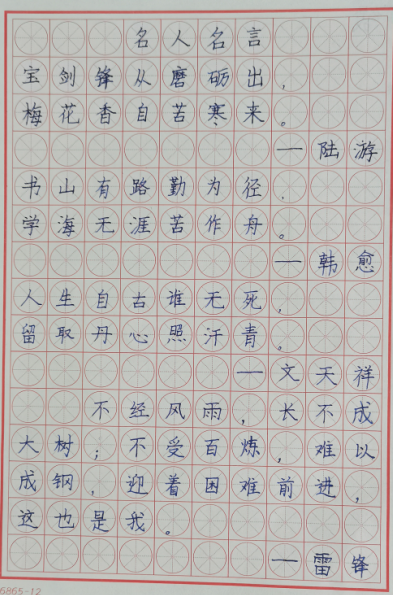 名人名言
宝剑锋从磨砺出，
梅花香自苦寒来。
——陆游
书山有路勤为径，
学海无涯苦作舟。
——韩愈
人生自古谁无死，
留取丹心照汗青。
——文天祥
不经风雨，长不成
大树；不受百炼，难以
成钢，迎着困难前进，
这也是我。
——雷锋
6865-12